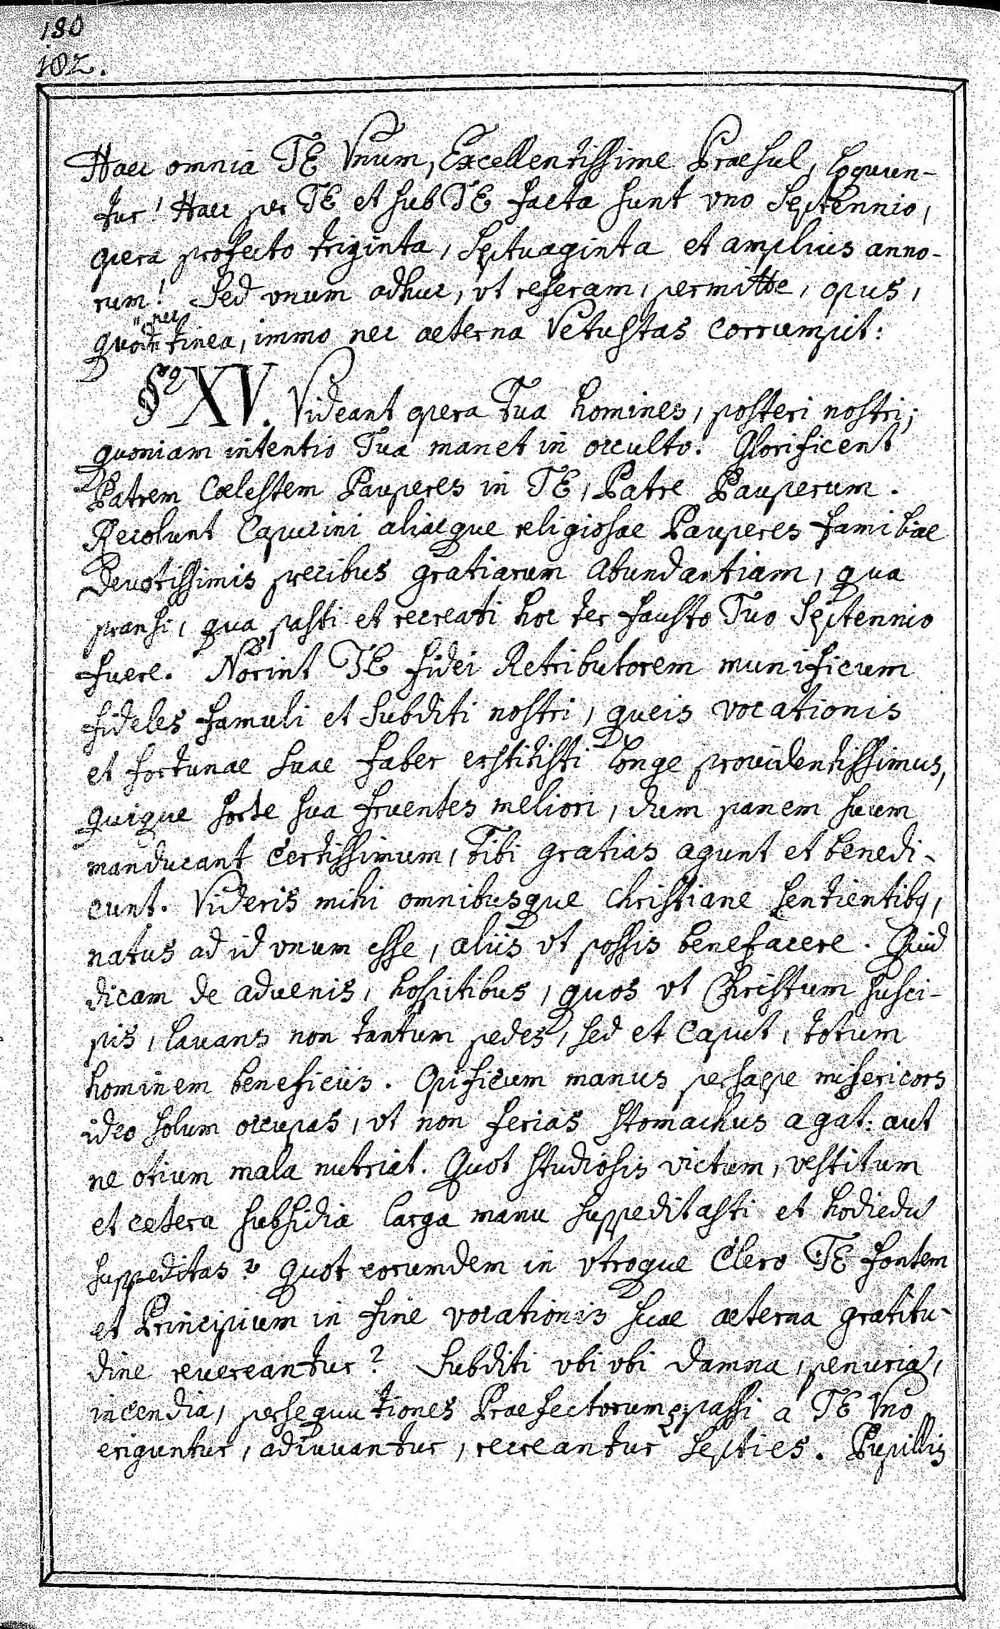 180
182.
Haec omnia TE Vnum, Excellentissime Praesul, loquun-
tur! Haec per TE et sub TE facta sunt vno Septennio,
opera profecto triginta, septuaginta et amplius anno-
rum! Sed vnum adhuc, vt referam, permitte, opus,
quod nec tinea, immo nec aeterna Vetustas corrumpit:
§º XV. Videant opera Tua homines, posteri nostri;
quoniam intentio Tua manet in occulto. Glorificent
Patrem Coelestem Pauperes in TE, Patre Pauperum.
Recolunt Capucini aliaeque religiosae Pauperes familiae
Devotissimis precibus gratiarum abundantiam, qua
pransi, qua pasti et recreati hoc ter fausto Tuo Septennio
fuere. Norint TE fidei Retributorem munificum
fideles famuli et Subditi nostri, queis vocationis
et fortunae suae faber exstitisti longe providentissimus,
quique sorte sua fruentes meliori, dum panem suum
manducant certissimum, Tibi gratias agunt et benedi-
cunt. Videris mihi omnibusque Christiane sentientibq,
natus ad id vnum esse, aliis vt possis benefacere. Quid
dicam de aduenis, hospitibus, quos vt Christum susci-
pis, lauans non tantum pedes, sed et caput, totum
hominem beneficiis. Opificum manus persaepe misericors
ideo solum occupas, vt non ferias stomachus agat: aut
ne otium mala nutriat. Quot studiosis victum, vestitum
et cetera subsidia larga manu suppeditasti et hodiedum
suppeditas? Quot eorumdem in vtroque Clero TE fontem
et Principium in fine vocationis suae aeterna gratitu-
dine reuereantur? Subditi vbi vbi damna, penuria,
incendia, persequutiones Praefectorum passi a TE Vno
eriguntur, adiuuantur, recreantur septies. Pupillis